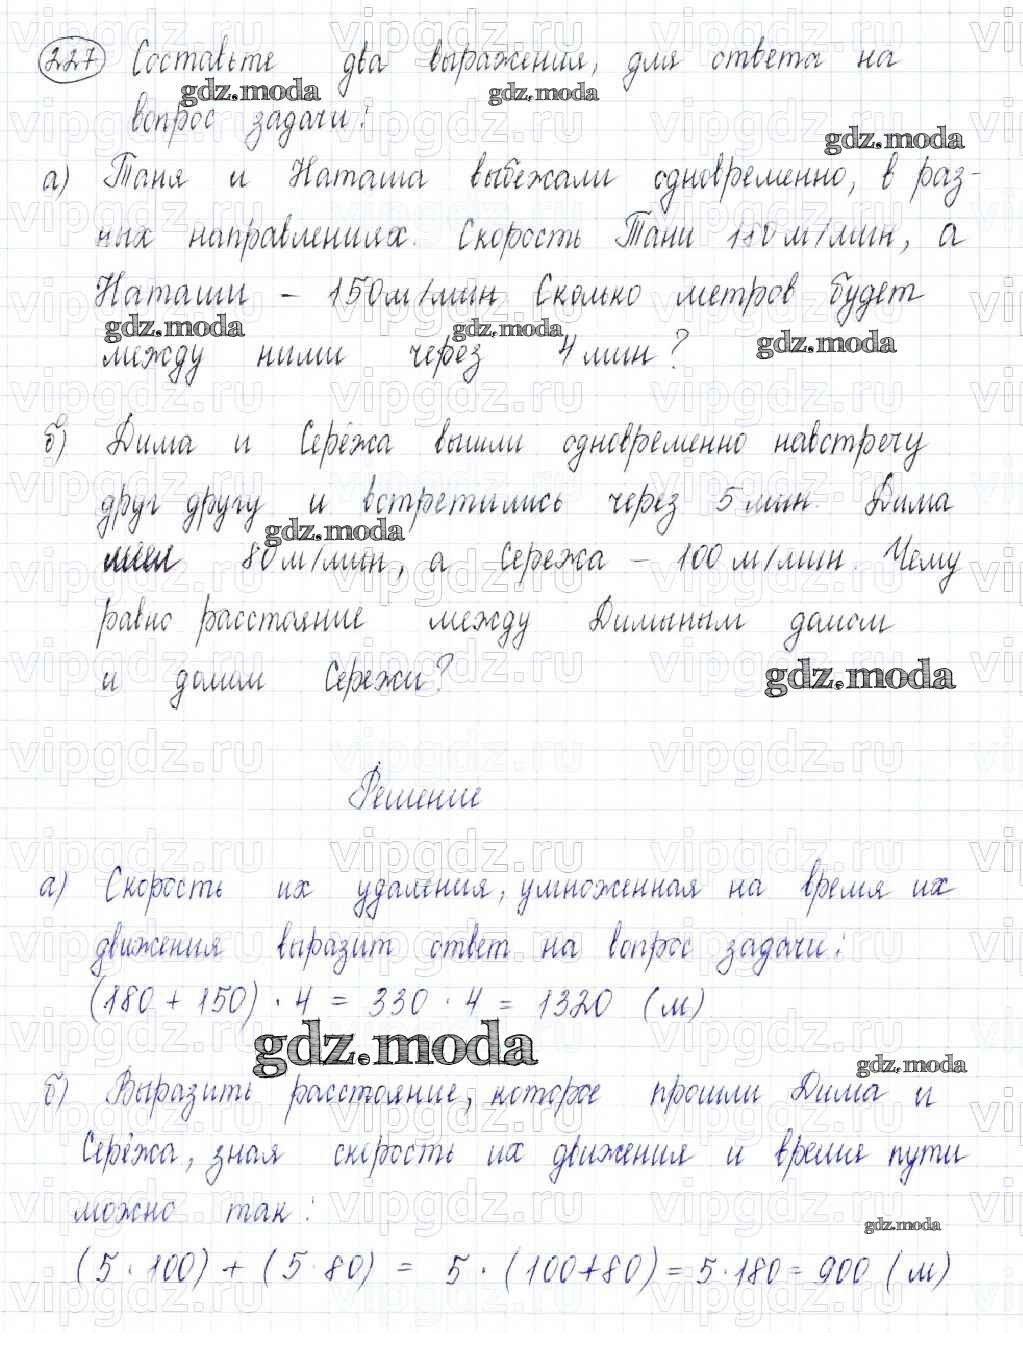 227 Составьте два выражения, для ответа на
вопрос задачи:
а) Таня и Наташа выбежали одновременно, в раз-
ных направлениях. Скорость Тани 180 м/мин, а
Наташи - 150 м/мин Сколько метров будет
между ними через 4 мин?
б) Дима и Серёжа вышли одновременно навстречу
друг другу и встретились через 5 мин. Дима
шёл 80 м/мин, а Сережа - 100 м/мин. Чему
равно расстояние между Диминым домом
и домом Сережи?
Решение
а) Скорость их удаления, умноженная на время их
движения выразит ответ на вопрос задачи:
(180 + 150) · 4 = 330 · 4 = 1320 (м)
б) Выразить расстояние, которое прошли Дима и
Серёжа, зная скорость их движения и время пути
можно так:
(5 · 100) + (5 · 80) = 5 · (100+80) = 5 · 180 = 900 (м)
gdz.moda
vipgdz.ru